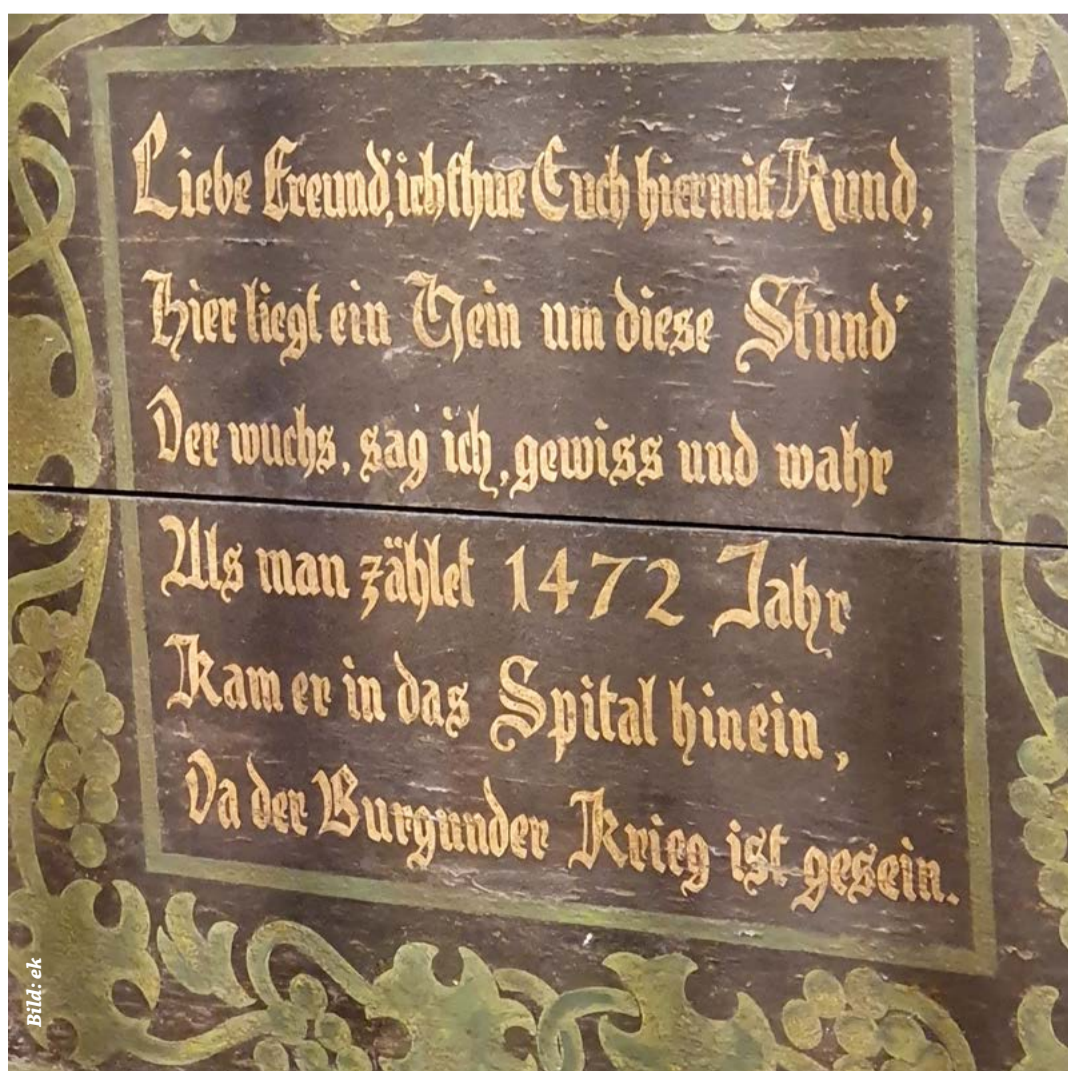 Liebe Freund', ich thue Euch hiermit Kund,
Hier liegt ein Wein um diese Stund'
Der wuchs, sag ich, gewiss und wahr
Als man zählet 1472 Jahr
Kam er in das Spital hinein,
Da der Burgunder Krieg ist gesein.
Bild: ek